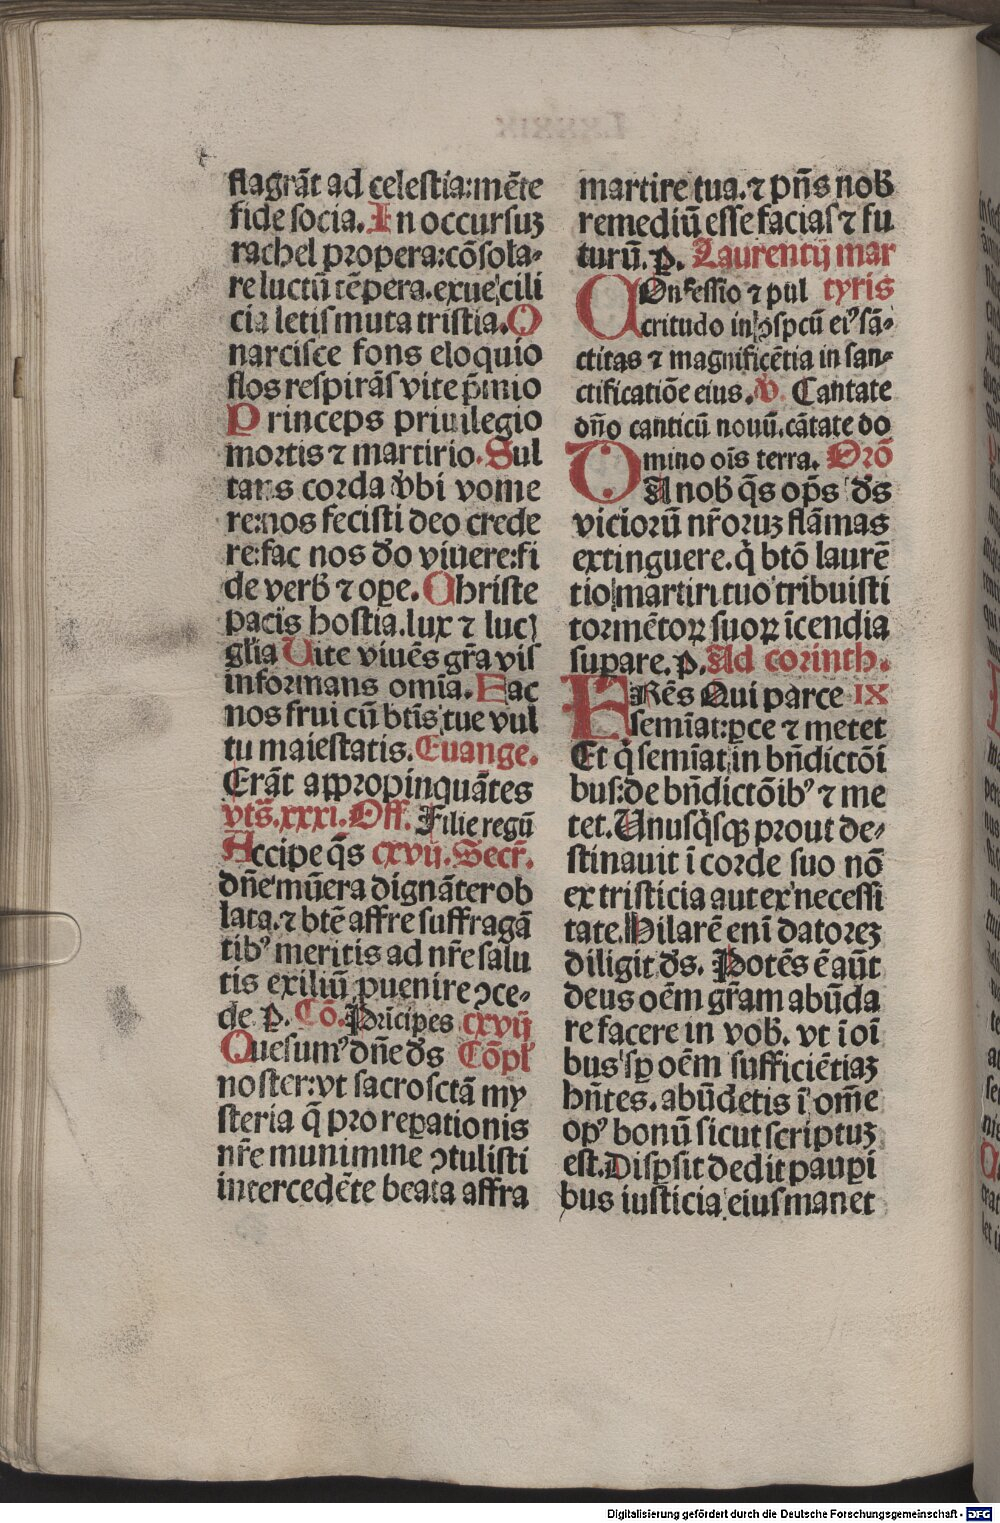 flagrãt ad celestia:mẽte
fide socia. In occursuʒ
rachel propera:cõsola-
re luctũ tẽpera.exue cili
cia letis muta tristia. O
narcisce fons eloquio
flos respirãs vite p̃mio
Princeps priuilegio
mortis ⁊ martirio. Sul
tans corda vbi vome
re:nos fecisti deo crede
re:fac nos do viuere:fi
de verb̃ ⁊ oꝑe. Christe
pacis hostia.lux ⁊ luc
gl̃ia Uite viuẽs gr̃a vis
informans om̃ia. Fac
nos frui cũ bt̃is tue vul
tu maiestatis. Euange.
Erãt appropinquãtes
vts̃.xxxi. Off. Filie regũ
Accipe q̃s cxvij. Secr̃.
dñe mũera dignãter ob
lata.⁊ btẽ affre suffragã
tibꝰ meritis ad nr̃e salu
tis exiliũ ꝓuenire ↄce-
de.p. Cõ. Prĩcipes cxvij
Quesumꝰ dñe ds̃ Cõpl'
noster:vt sacrosctã my
steria q̃ pro reꝑationis
nr̃e munimine ↄtulisti
intercedẽte beata affra
martire tua.⁊ pñs nob̃
remediũ esse facias ⁊ fu
turũ.p. Laurentij mar
COnfessio ⁊ pul tyris
critudo in ↄspcũ eiꝰ sã-
ctitas ⁊ magnificẽtia in san-
ctificatiõe eius. V. Cantate
dño canticũ nouũ.cãtate do
mino ois̃ terra. Orõ
DA nob̃ q̃s op̃s ds̃
viciorũ nr̃oruʒ flãmas
extinguere.q̃ btõ laurẽ
tio martiri tuo tribuisti
tormẽtoꝝ suoꝝ ĩcendia
suꝑare.p. Ad corinth.
FRẽs Qui parce IX
semĩat:ꝑce ⁊ metet
Et q̃ semĩat in bñdictõĩ
bus:de bñdictõibꝰ ⁊ me
tet. Unusq̃sqꝫ prout de-
stinauit ĩ corde suo nõ
ex tristicia aut ex necessi
tate. Hilarẽ enĩ datoreʒ
diligit ds̃. Potẽs ẽ aũt
deus oẽm gr̃am abũda
re facere in vob̃. vt ĩ oĩ
bus sꝑ oẽm sufficiẽtiaʒ
hñtes.abũdetis ĩ om̃e
opꝰ bonũ sicut scriptuʒ
est. Disꝑsit dedit pauꝑi
bus iusticia eius manet
Digitalisierung gefördert durch die Deutsche Forschungsgemeinschaft - DFG